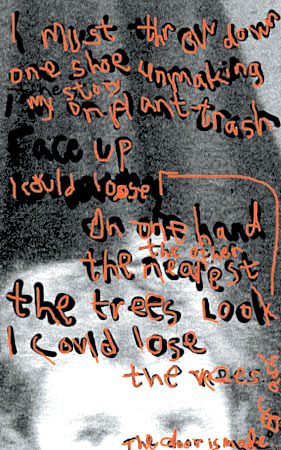 I must throw down
one shoe unmaking
my story on plant trash
Face up
I could loose
On one hand
the other
the nearest
the trees look
I could lose
the trees
The door is made
or ash